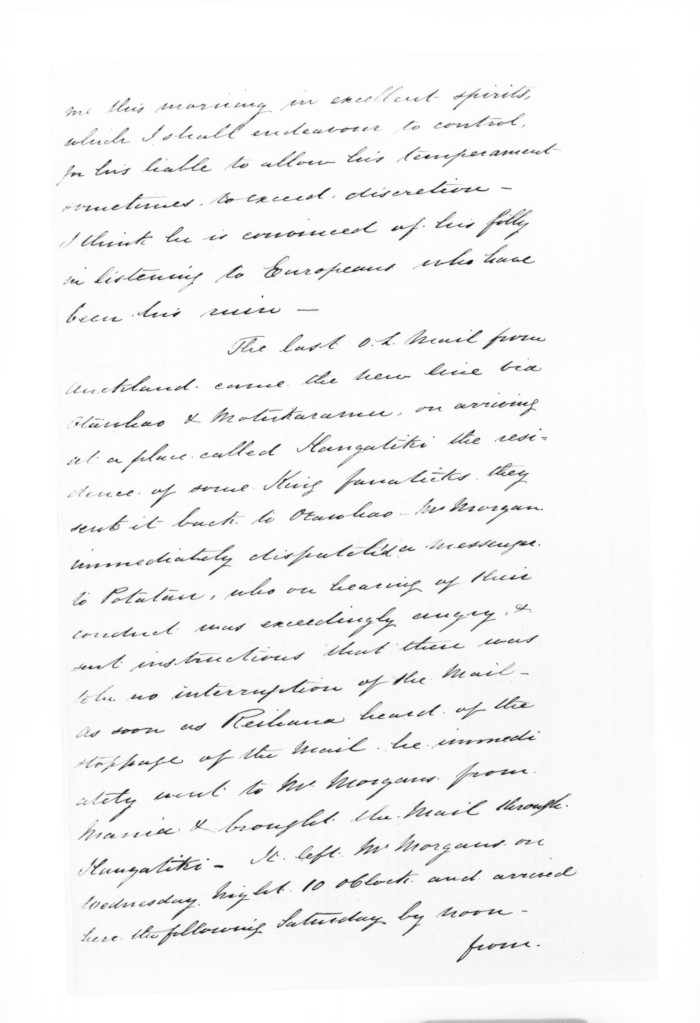 me this morning in excellent spirits,
which I shall endeavour to control,
for his liable to allow his temperament
sometimes to exceed discretion -
I think he is convinced of his folly
in listening to Europeans who have
been his ruin -
The last O. L. Mail from
Auckland came the new line via
Otawhao & Motukaramu, on arriving
at a place called Hangatiki the resi=
dence of some King fanaticks they
sent it back to Otawhao - Mr Morgan
immediately dispatch'd a messenger
to Potatau, who on hearing of their
conduct was exceedingly angry, &
sent instructions that there was
to be no interruption of the Mail -
As soon as Reihana heard of the
stoppage of the Mail he immedi
ately went to Mr Morgans from
Mania & brought the Mail through
Hangatiki - It left Mr Morgans on
Wednesday Night 10 oClock and arrived
here the following Saturday by noon -
from.